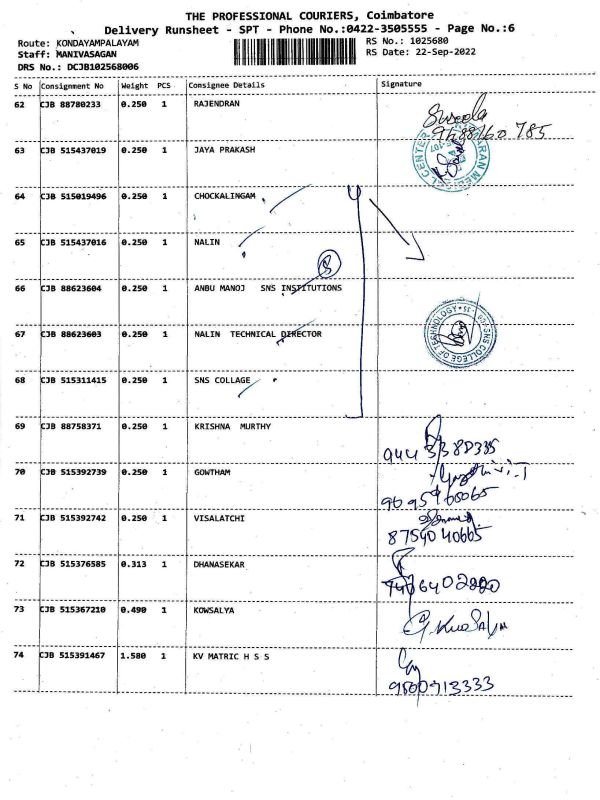 THE PROFESSIONAL COURIERS, Coimbatore
Delivery Runsheet - SPT - Phone No.:0422-3505555 - Page No.:6
Route: KONDAYAMPALAYAM RS No.: 1025680
Staff: MANIVASAGAN RS Date: 22-Sep-2022
DRS No.: DCJB102568006
S No Consignment No Weight PCS Consignee Details Signature
62 CJB 88780233 0.250 1 RAJENDRAN
63 CJB 515437019 0.250 1 JAYA PRAKASH
64 CJB 515019496 0.250 1 CHOCKALINGAM
65 CJB 515437016 0.250 1 NALIN
5
66 CJB 88623604 0.250 1 ANBU MANOJ SNS INSTITUTIONS
67 CJB 88623603 0.250 1 NALIN TECHNICAL DIRECTOR
SNS COLLEGE OF TECHNOLOGY
68 CJB 515311415 0.250 1 SNS COLLAGE
69 CJB 88758371 0.250 1 KRISHNA MURTHY
70 CJB 515392739 0.250 1 GOWTHAM
71 CJB 515392742 0.250 1 VISALATCHI
8754040665
72 CJB 515376585 0.313 1 DHANASEKAR
73 CJB 515367210 0.490 1 KOWSALYA
74 CJB 515391467 1.580 1 KV MATRIC H S S
9500913333